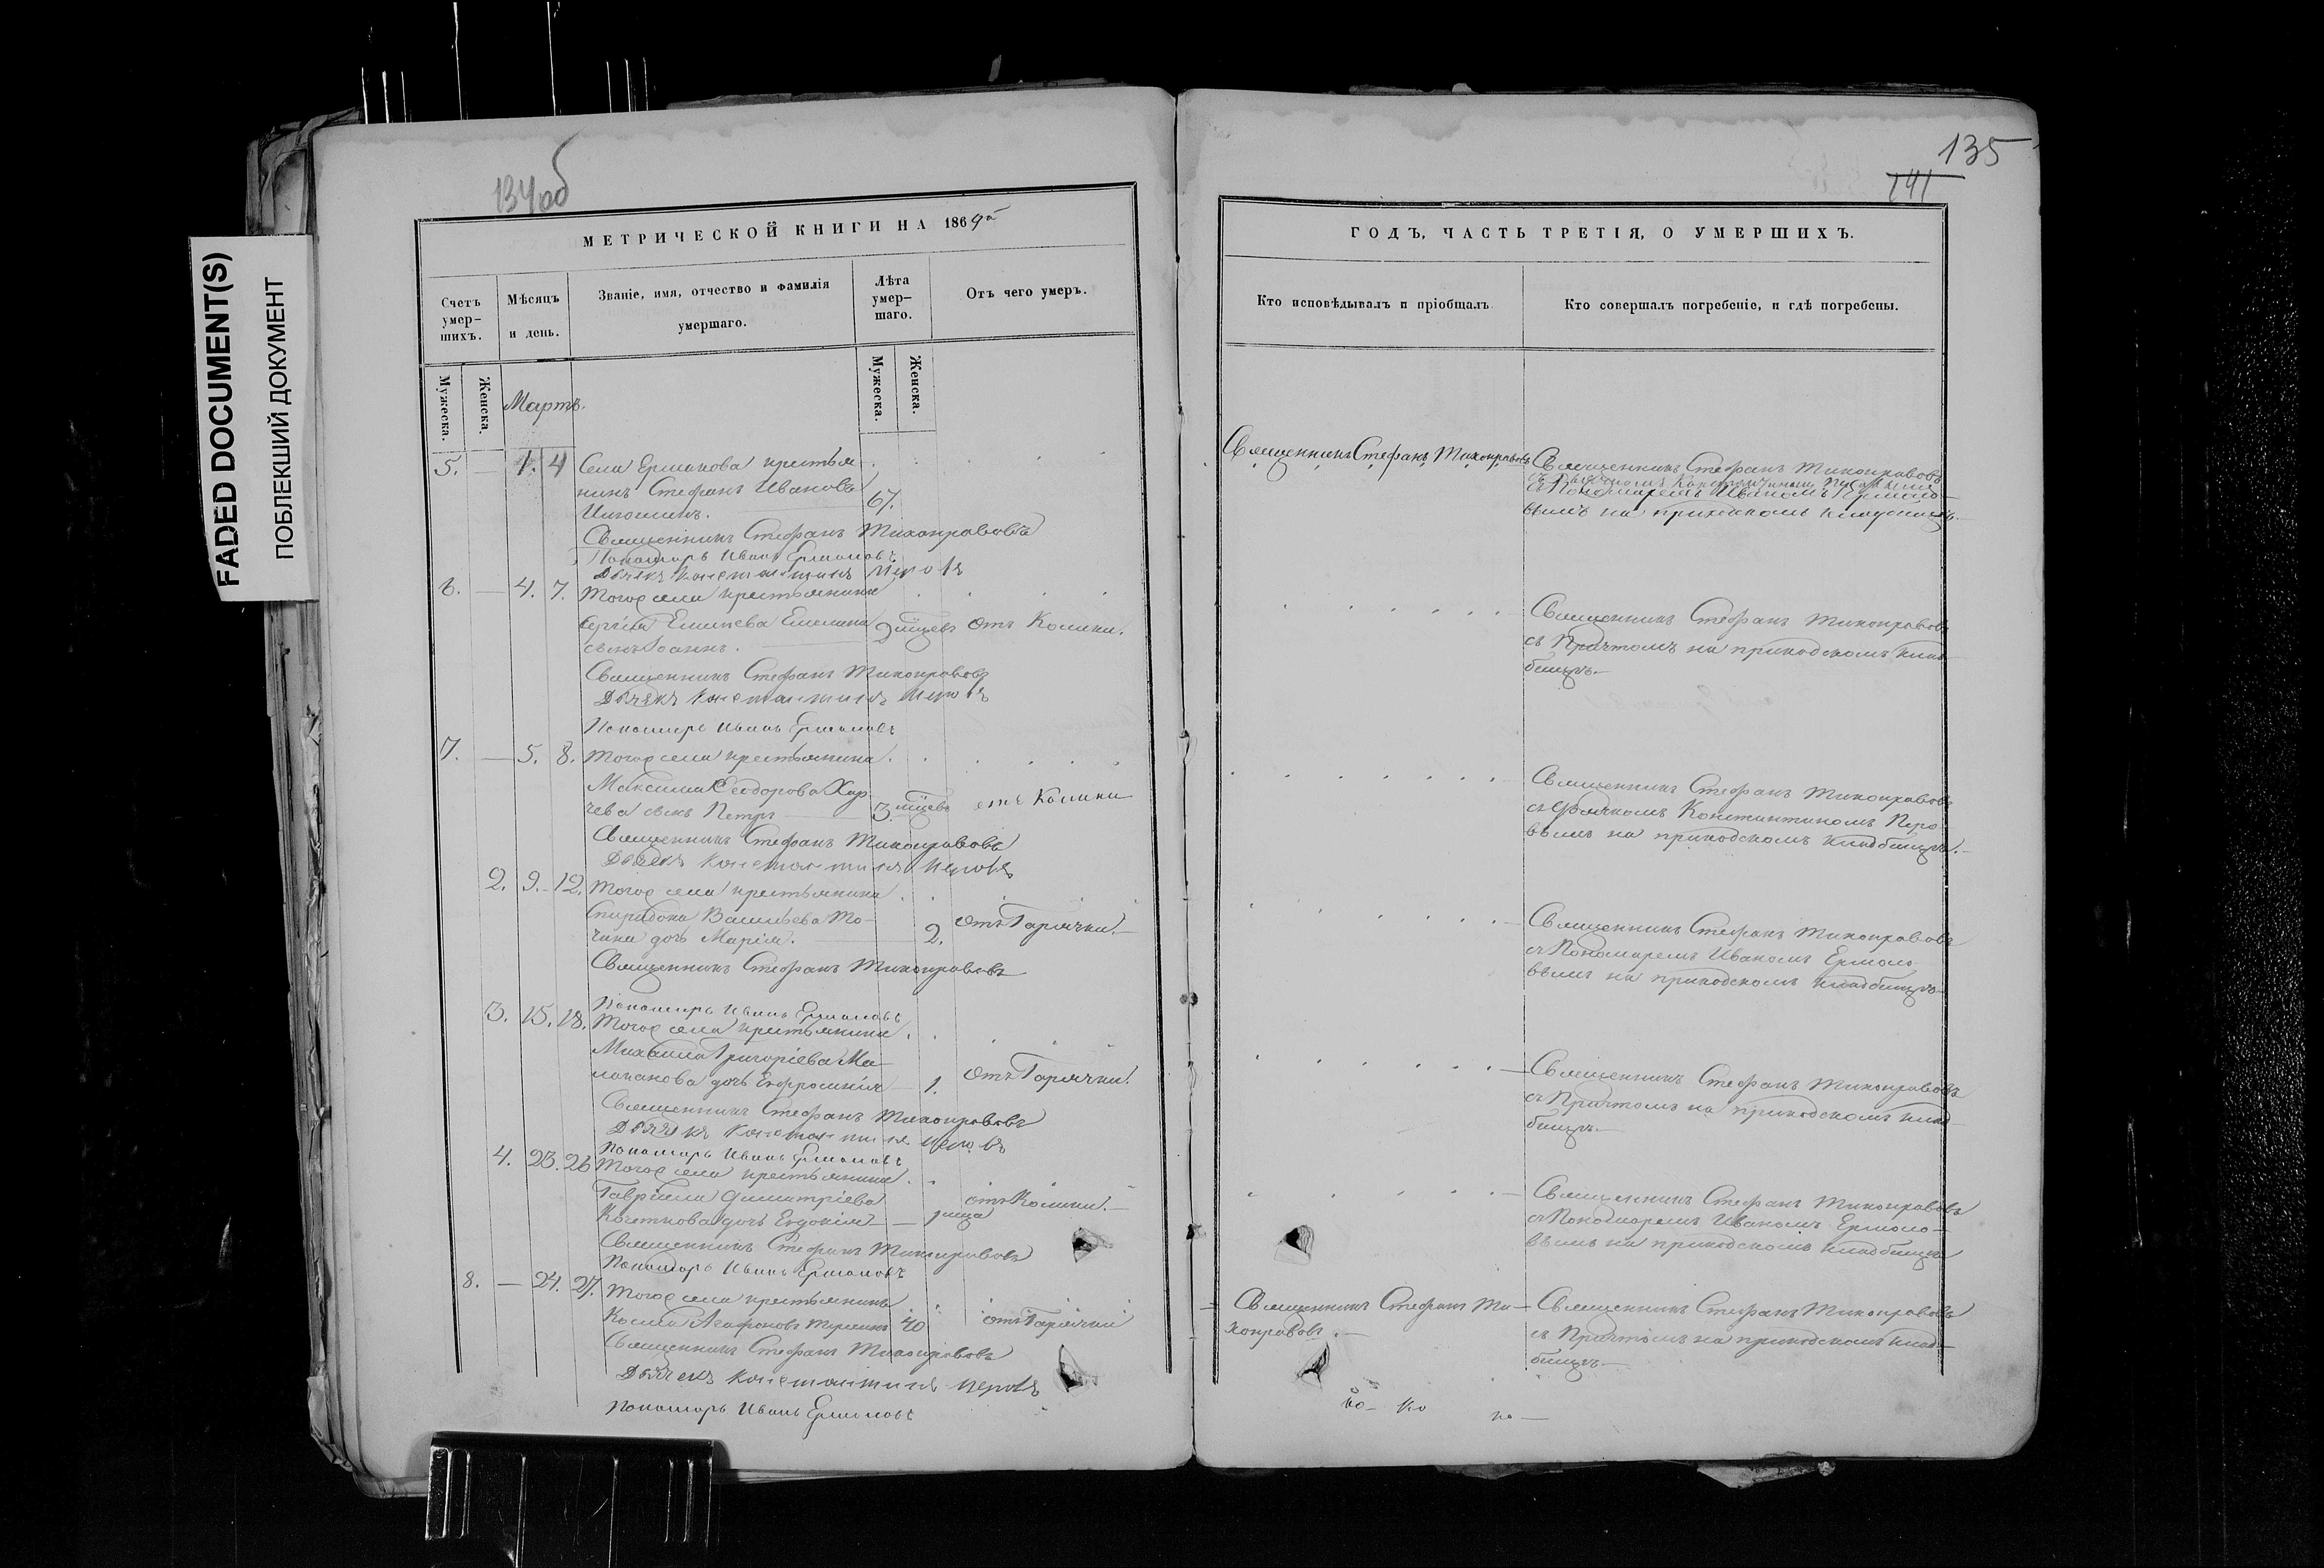 FADED DOCUMENT(S)
ПОБЛЕКШИЙ ДОКУМЕНТ
134об
МЕТРИЧЕСКОЙ КНИГИ НА 1869й
Счетъ умер-
шихъ.
Мѣсяцъ
и день.
Званіе, имя, отчество и фамилія
умершаго.
Лѣта
умер-
шаго.
Отъ чего умеръ.
Мужеска.
Женска.
Мартъ.
Мужеска.
Женска.
5. — 1. 4 Села Ермакова крестья
нинъ Стефанъ Ивановъ
67.
Священникъ Стефанъ Тихонравовъ
Пономарь Иванъ Ермоловъ
Дьячекъ Константинъ Перовъ
6. — 4. 7. Тогоже села крестьянина
Сергія Емельяна 2 мѣсцевъ отъ Колики.
сынъ Іоаннъ.
Священникъ Стефанъ Тихонравовъ
Дьячекъ Константинъ Перовъ
Пономарь Иванъ Ермоловъ
7. — 5. 8. Тогоже села крестьянина
Максима Ѳеодорова
сынъ Петръ — 3. мѣсцевъ отъ Колики
Священникъ Стефанъ Тихонравовъ
Дьячекъ Константинъ Перовъ
2. 9. 12. Тогоже села крестьянина
Спиридона Васильева То-
чина дочь Марія. — 2. отъ Горячки.
Священникъ Стефанъ Тихонравовъ
Пономарь Иванъ Ермоловъ
3. 15. 18. Тогоже села крестьянина
Михаила Григоріева Ма-
лаканова дочь Евфросинія — 1. отъ Горячки.
Священникъ Стефанъ Тихонравовъ
Дьячекъ Константинъ Перовъ
Пономарь Иванъ Ермоловъ
4. 23. 26 Тогоже села крестьянина
Гавріила Димитріева отъ Колики.
Кочеткова дочь Евдокія — 1 мца
Священникъ Стефанъ Тихонравовъ
Пономарь Иванъ Ермоловъ
8. — 24. 27. Тогоже села крестьянинъ
Косма Агафоновъ 40 отъ Горячки
Священникъ Стефанъ Тихонравовъ
Дьячекъ Константинъ Перовъ
Пономарь Иванъ Ермоловъ
135
141
ГОДЪ, ЧАСТЬ ТРЕТІЯ, О УМЕРШИХЪ.
Кто исповѣдывалъ и пріобщалъ
Кто совершалъ погребеніе, и гдѣ погребены.
Священникъ Стефанъ Тихонравовъ
Священникъ Стефанъ Тихонравовъ
съ Дьячкомъ Константиномъ
съ Пономаремъ Иваномъ Ермоло-
вымъ на приходскомъ кладбищѣ.
Священникъ Стефанъ Тихонравовъ
съ Причтомъ на приходскомъ клад-
бищѣ.
Священникъ Стефанъ Тихонравовъ
съ Дьячкомъ Константиномъ Перо-
вымъ на приходскомъ кладбищѣ.
Священникъ Стефанъ Тихонравовъ
съ Пономаремъ Иваномъ Ермоло-
вымъ на приходскомъ кладбищѣ
Священникъ Стефанъ Тихонравовъ
съ Причтомъ на приходскомъ клад-
бищѣ.
Священникъ Стефанъ Тихонравовъ
съ Пономаремъ Иваномъ Ермоло-
вымъ на приходскомъ кладбищѣ
Священникъ Стефанъ Ти-
хонравовъ.
Священникъ Стефанъ Тихонравовъ
съ Причтомъ на приходскомъ клад-
бищѣ.